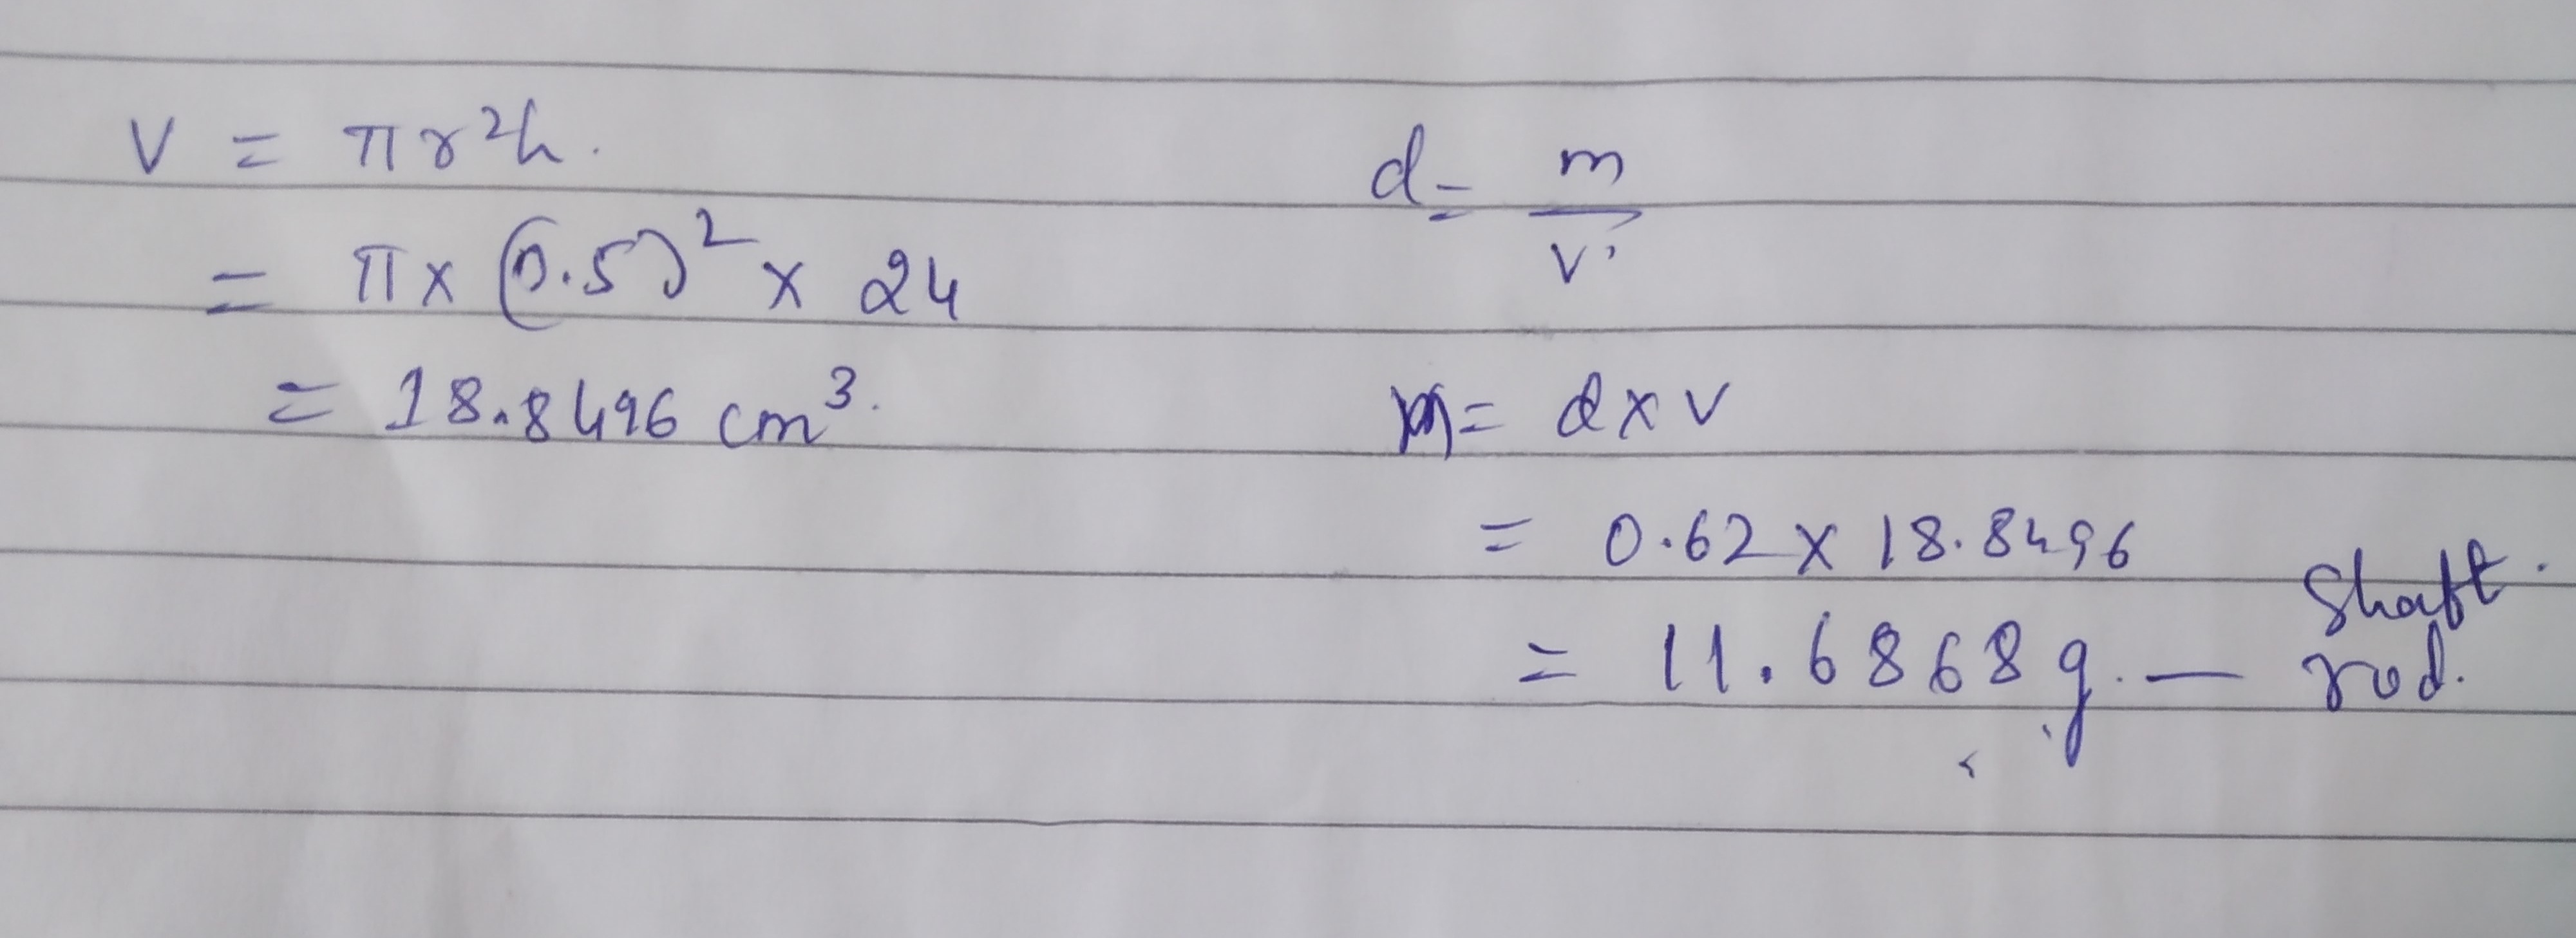 V = πr²h.
= π x (0.5)² x 24
= 18.8496 cm³.
d = m
v
m = d x v
= 0.62 x 18.8496
= 11.6868 g. — shaft rod.